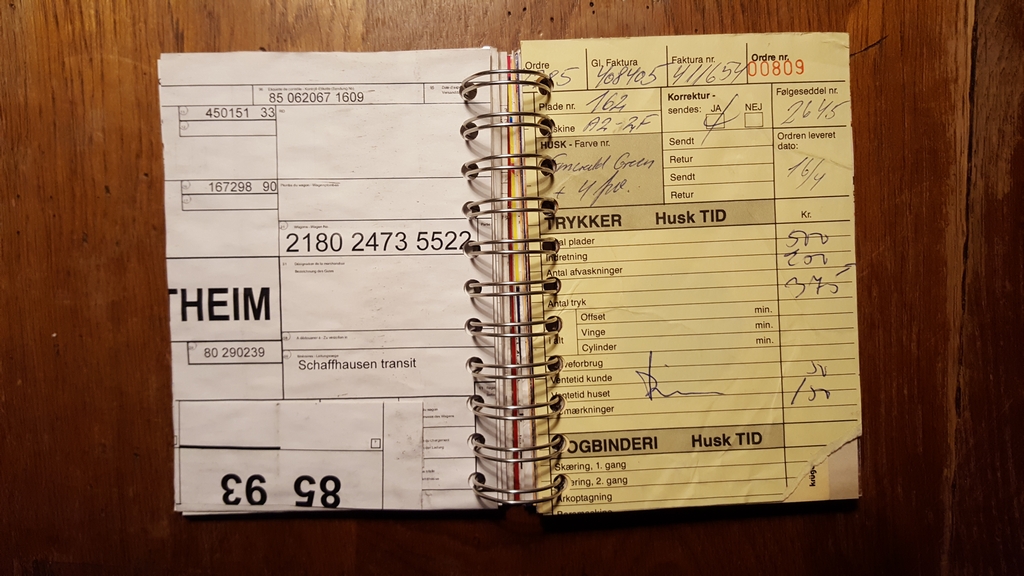 85 062067 1609
450151 33
167298 90
2180 2473 5522
THEIM
80 290239
Schaffhausen transit
85 93
Ordre
Gl. Faktura
Faktura nr.
Ordre nr.
85
408405
411654
00809
Plade nr. 162
Korrektur -
sendes: JA NEJ
Følgeseddel nr.
2645
skine A2-2F
HUSK - Farve nr.
Sendt
Ordren leveret
dato:
Emerald Green
Retur
16/4
Sendt
Retur
TRYKKER Husk TID
Kr.
al plader
500
Indretning
200
Antal afvaskninger
375
Antal tryk
Offset min.
Vinge min.
Cylinder min.
veforbrug
50
Ventetid kunde
Ventetid huset
150
emærkninger
OGBINDERI Husk TID
Skæring, 1. gang
æring, 2. gang
Arkoptagning